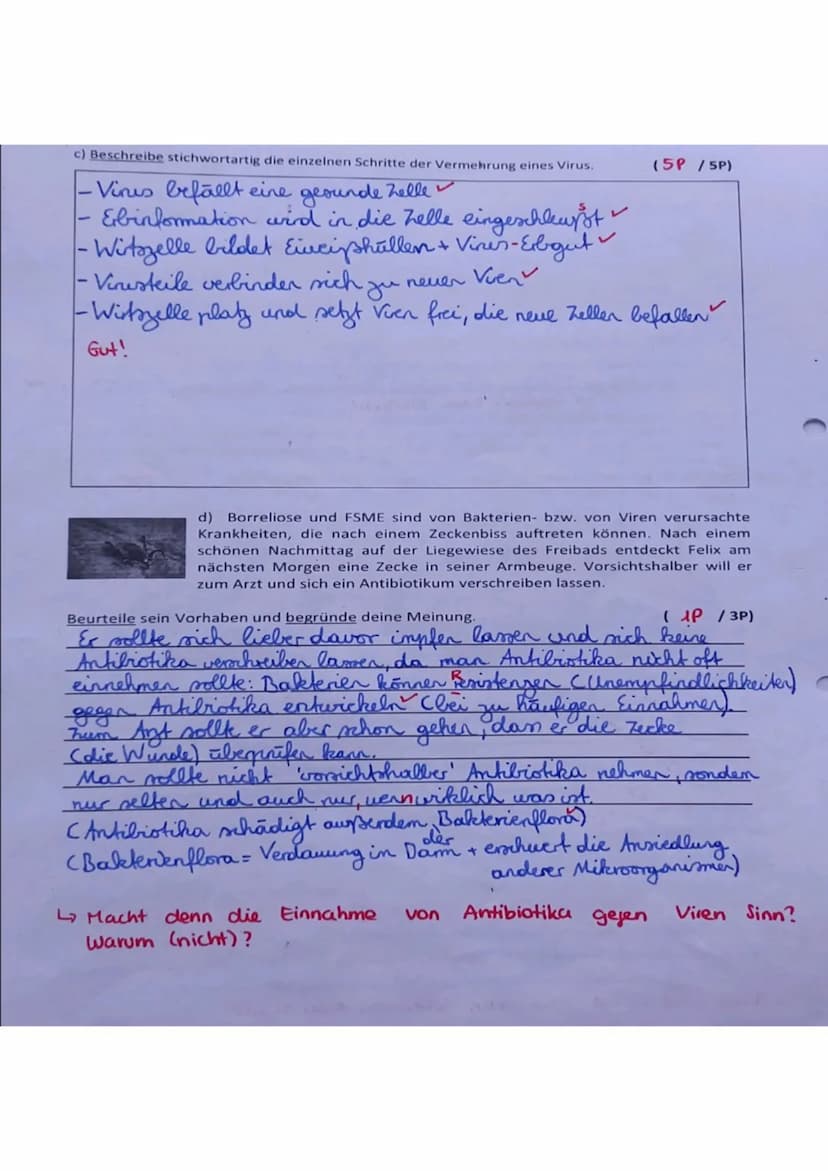 c) Beschreibe stichwortartig die einzelnen Schritte der Vermehrung eines Virus. (5P / 5P)
- Virus befällt eine gesunde Zelle ✓
- Erbinformation wird in die Zelle eingeschleußt ✓
s
- Wirtszelle bildet Eiweißhüllen + Virus-Erbgut ✓
- Virusteile verbinden sich zu neuen Viren ✓
- Wirtszelle platz und setzt Viren frei, die neue Zellen befallen ✓
Gut!
d) Borreliose und FSME sind von Bakterien- bzw. von Viren verursachte
Krankheiten, die nach einem Zeckenbiss auftreten können. Nach einem
schönen Nachmittag auf der Liegewiese des Freibads entdeckt Felix am
nächsten Morgen eine Zecke in seiner Armbeuge. Vorsichtshalber will er
zum Arzt und sich ein Antibiotikum verschreiben lassen.
Beurteile sein Vorhaben und begründe deine Meinung. ( 1P / 3P)
Er sollte sich lieber davor impfen lassen und sich keine
Antibiotika verschreiben lassen, da man Antibiotika nicht oft
einnehmen sollte: Bakterien können Resistenzen (Unempfindlichkeiten)
gegen Antibiotika entwickeln ✓ (bei zu häufigen Einnahmen).
Zum Arzt sollte er aber schon gehen, dass er die Zecke
(die Wunde) überprüfen kann.
Man sollte nicht 'vorsichtshalber' Antibiotika nehmen, sondern
nur selten und auch nur, wenn wirklich was ist.
(Antibiotika schädigt außerdem Bakterienflora) ✓
(Bakterienflora = Verdauung in Darm + erschwert die Ansiedlung
der
anderer Mikroorganismen)
↳ Macht denn die Einnahme von Antibiotika gegen Viren Sinn?
Warum (nicht)?